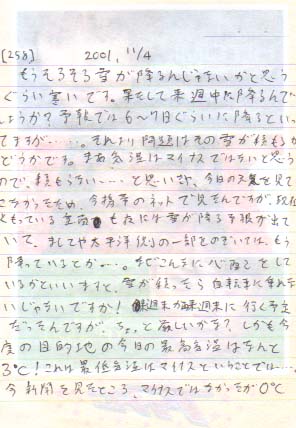 [258] 2001, 11/4
もうそろそろ雪が降るんじゃないかと思う
ぐらい寒いです。果たして来週中に降るんで
しょうか?予報では6〜7日ぐらいに降るといっ
てますが……。それより問題はその雪が積もるか
どうかです。まあ気温はマイナスではないと思う
ので、積もらない……と思いきや、今日の天気を見て
なかったため、今携帯のネットで見たんですが、現在
いて、ましてや太平洋側の一部をのぞいては、もう
降っているとか…。なぜこんなに心配をして
いるかといいますと、雪が積ったら自転車に乗れな
いじゃないですか!
だったんですが、ちょっと厳しいかな?しかも今
度の目的地の今日の最高気温はなんと
3℃!これは最低気温はマイナスということでは…。
今新聞を見たところ、マイナスではなかったが0℃